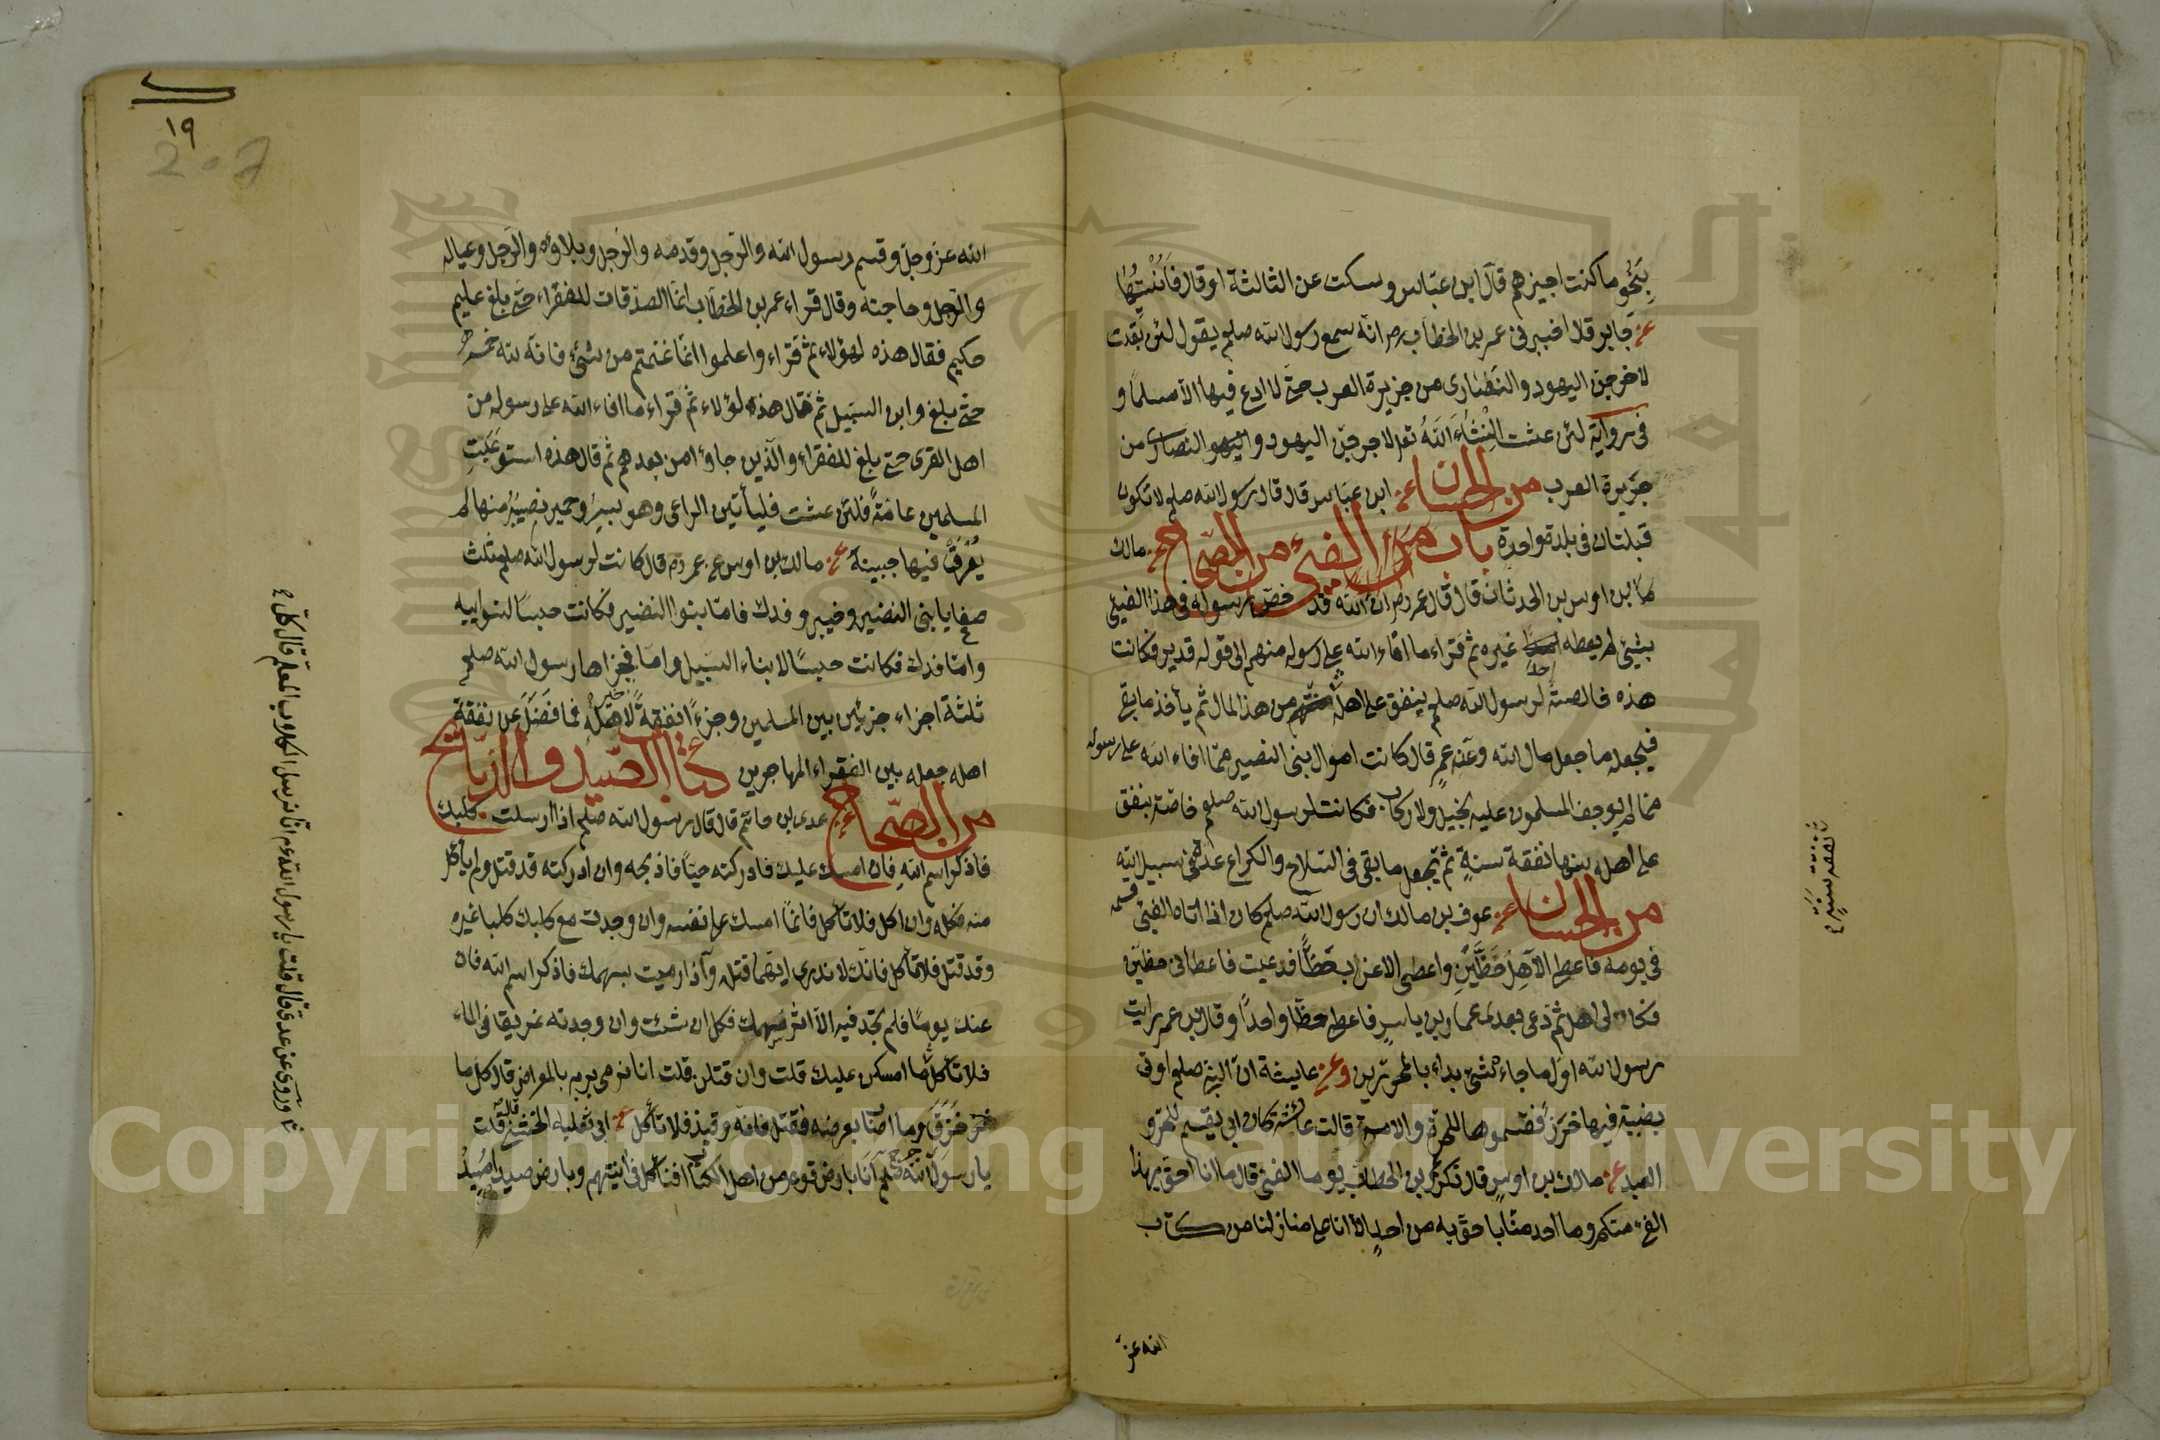 بِنَحْوِ ما كنت اجيزهم قال ابن عبّاس وسكت عن الثالثة او قال فَاُنْسِيتُهَا
عن جابر قال اخبرنى عمر بن الخطاب رض انه سمع رسول الله صلعم يقول لئن بقيت
لاخرجن اليهود والنصارى من جزيرة العرب حتى لا ادع فيها الا مسلما و
فى رواية لئن عشت اِنْشَاءَ اللهُ تعا لاخرجن اليهود والنصارى من
جزيرة العرب من الحسان عن ابن عباس قال قال رسول الله صلعم لا تكون
قبلتان فى بلدة واحدة باب الفئ من الصحاح عن مالك
بن اوس بن الحدثان قال قال عمر رض ان الله قد خص رسوله فى هذا الفئ
بشئ لم يعطه احدا غيره ثم قراء ما افاء الله على رسوله منهم الى قوله قدير فكانت
هذه خالصة لرسول الله صلعم ينفق على اهله من هذا المال ثم يأخذ ما بقى
فيجعله ما جعل مال الله وعن عمر قال كانت اموال بنى النضير مما افاء الله على رسوله
مما لم يوجف المسلمون عليه بخيل ولا ركاب فكانت لرسول الله صلعم خاصة ينفق
على اهله منها نفقة سنةٍ ثم يجعل ما بقى فى السلاح والكراع عدة فى سبيل الله
من الحسان عن عوف بن مالك ان رسول الله صلعم كان اذا اتاه الفئ قسمه
فى يومه فاعطى الآهل حَظَّيْنِ واعطى الاعزب حَظًّا فدعيت فاعطانى حظين
فكان لى اهل ثم دعى بعدى عمار بن ياسر فاعطى حظا واحدًا وقال ابن عمر رايت
رسول الله اول ما جاءه شئ بداء بالمحررين وعن عايشة ان النبى صلعم اوتى
بظبية فيها خرز فقسمها للحرة والامة قالت عائشة كان ابى يقسم للحر و
العبد عن مالك بن اوس قال ذكر عمر بن الخطاب يوما الفئ قال ما انا احق بهذا
الفئ منكم وما احد منا باحق به من احدٍ الا انا على منازلنا من كتاب
الله عز
نفقة سنةٍ
١٩
207
الله عز وجل وقسم رسول الله والرجل وقدمه والرجل وبلاؤه والرجل وعياله
والرجل وحاجته وقال قراء عمر بن الخطاب انما الصدقات للفقراء حتى بلغ عليم
حكيم فقال هذه لهؤلاء ثم قراء واعلموا انما غنمتم من شئ فان لله خمسه
حتى بلغ وابن السبيل ثم قال هذه لهؤلاء ثم قراء ما افاء الله على رسوله من
اهل القرى حتى بلغ للفقراء والذين جاؤا من بعدهم ثم قال هذه استوعبت
المسلمين عامة فلئن عشت فليأتين الراعى وهو بسرو حمير نصيبه منها لم
يعرق فيها جبينه عن مالك بن اوس عن عمر رض قال كانت لرسول الله صلعم ثلث
صفايا بنى النضير وخيبر وفدك فاما بنوا النضير فكانت حبسا لنوايبه
واما فدك فكانت حبسًا لابناء السبيل واما خيبر فجزاها رسول الله صلعم
ثلثة اجزاء جزئين بين المسلمين وجزءًا نفقةً لاهله فما فَضَلَ عن نفقة
اهله جعله بين الفقراء المهاجرين كتاب الصيد والذبائح
من الصحاح عن عدى ابن حاتم قال قال رسول الله صلعم اذا ارسلت كلبك
فاذكر اسم الله فان امسك عليك فادركته حيًا فاذبحه وان ادركته قد قتل ولم يأكل
منه فكله وان اكل فلا تأكل فانما امسك على نفسه وان وجدت مع كلبك كلبا غيره
وقد قتل فلا تأكل فانك لا تدرى ايهما قتل وآذا رميت بسهمك فاذكر اسم الله فان
عنك يومًا فلم تجد فيه الا اثر سهمك فكل ان شئت وان وجدته غريقا فى الماء
فلا تأكل ما امسكن عليك قلت وان قتلن قلت انا نرمى بالمعراض قال كل ما
خَزَقَ وما اصاب بعرضه فقتل فانه وقيذ فلا تأكل عن ابى ثعلبه الخشنى قال قلت
يا رسول الله صلعم انا بارض قوم من اهل الكتاب افنأكل فى آنيتهم وبارض صيد اصيد
وروى عن عدى قال قلت يا رسول الله انا نرسل الكلاب المعلم قال كل